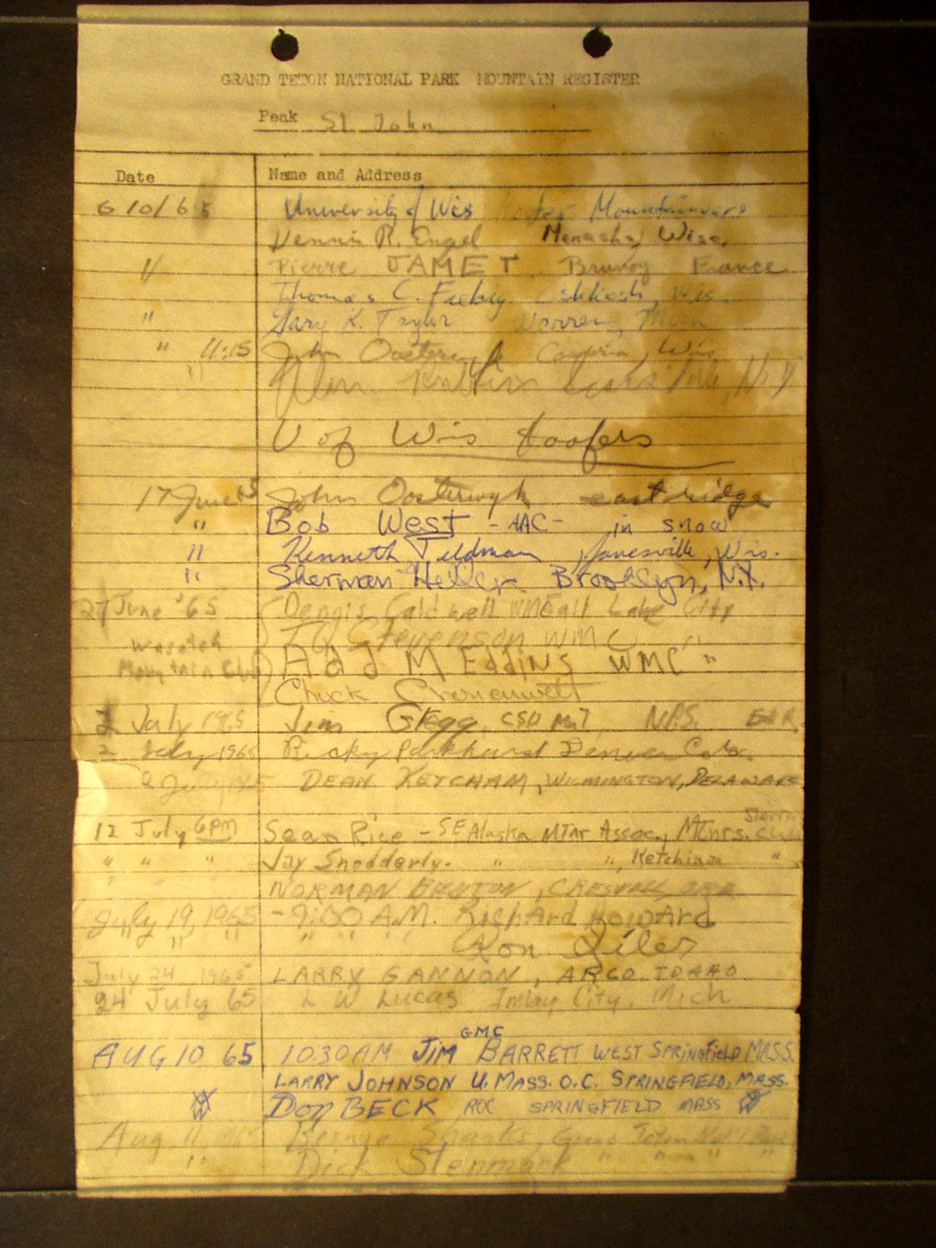 GRAND TETON NATIONAL PARK MOUNTAIN REGISTER
Peak St. John
Date Name and Address
6 10/65 University of Wis Mountaineers
Dennis R. Engel Menasha, Wisc.
" Pierre JAMET, Brunoy France
Thomas C. Oshkosh, Wis.
" Gary K. Taylor Warren, Mich
" 11:15 John Oosterwyk Wis
" N.Y
U of Wis Hoofers
17 June 65 John Oosterwyk east ridge
" Bob West - AAC - in snow
" Kenneth Janesville, Wis.
" Sherman Heller Brooklyn, N.Y.
27 June '65 Dennis Caldwell WMC Salt Lake City
J Q Stevenson WMC "
Wasatch
Mountain Club M Eddins WMC "
Chick
2 July 1965 Jim NPS.
2 July 1965 Ricky Parkhurst Denver Colo.
2 July 1965 DEAN KETCHAM, WILMINGTON, DELAWARE
12 July 6PM Sean Rice - SE Alaska MTNr Assoc., Mtnrs. Sierra Club
" " " Jay Snodderly. " ", Ketchikan "
NORMAN BENTON, CRESWELL ORE
July 19, 1965 - 9:00 A.M. Richard Howard
" " " " " " Ron
July 24 1965 LARRY GANNON, ARCO IDAHO
24 July 65 L W Lucas Imlay City, Mich
AUG 10 65 10:30 AM JIM GMC BARRETT WEST SPRINGFIELD MASS.
LARRY JOHNSON U. MASS. O.C. SPRINGFIELD, MASS.
DON BECK ROC SPRINGFIELD MASS
Aug 11, 1965 Bernie Shanks, Grand Teton Nat'l Park
" Dick Stenmark " " " "